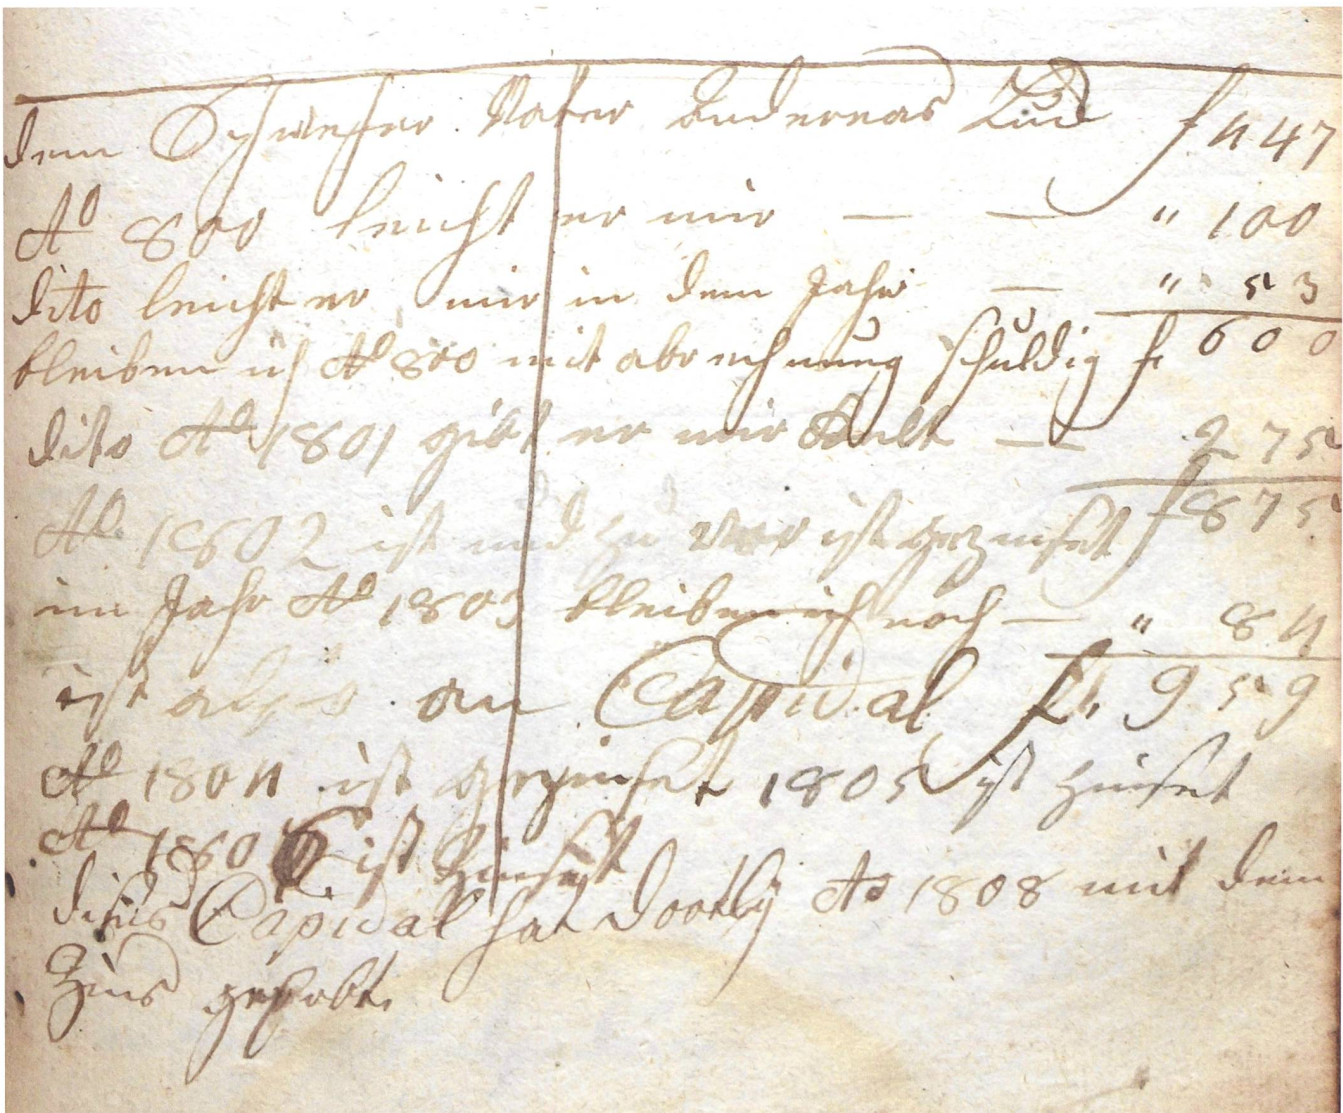 dem Schweher Vatter Andereas Lud f 447
Aō 800 leicht er mir — — " 100
dito leicht er mir in dem Jahr — " 53
bleiben ich Aō 800 mit abrechnung schuldig f 600
dito Aō 1801 gibt er mir — — 275
Aō 1802 ist und zu vor ist gezinset f 875
im Jahr Aō 1803 bleiben ich noch — " 84
ist also an Capidal fl. 959
Aō 1804 ist gezinset 1805 ist zinset
Aō 1806 ist zinset
dises Capidal hat Aō 1808 mit dem
Zins gehabt.